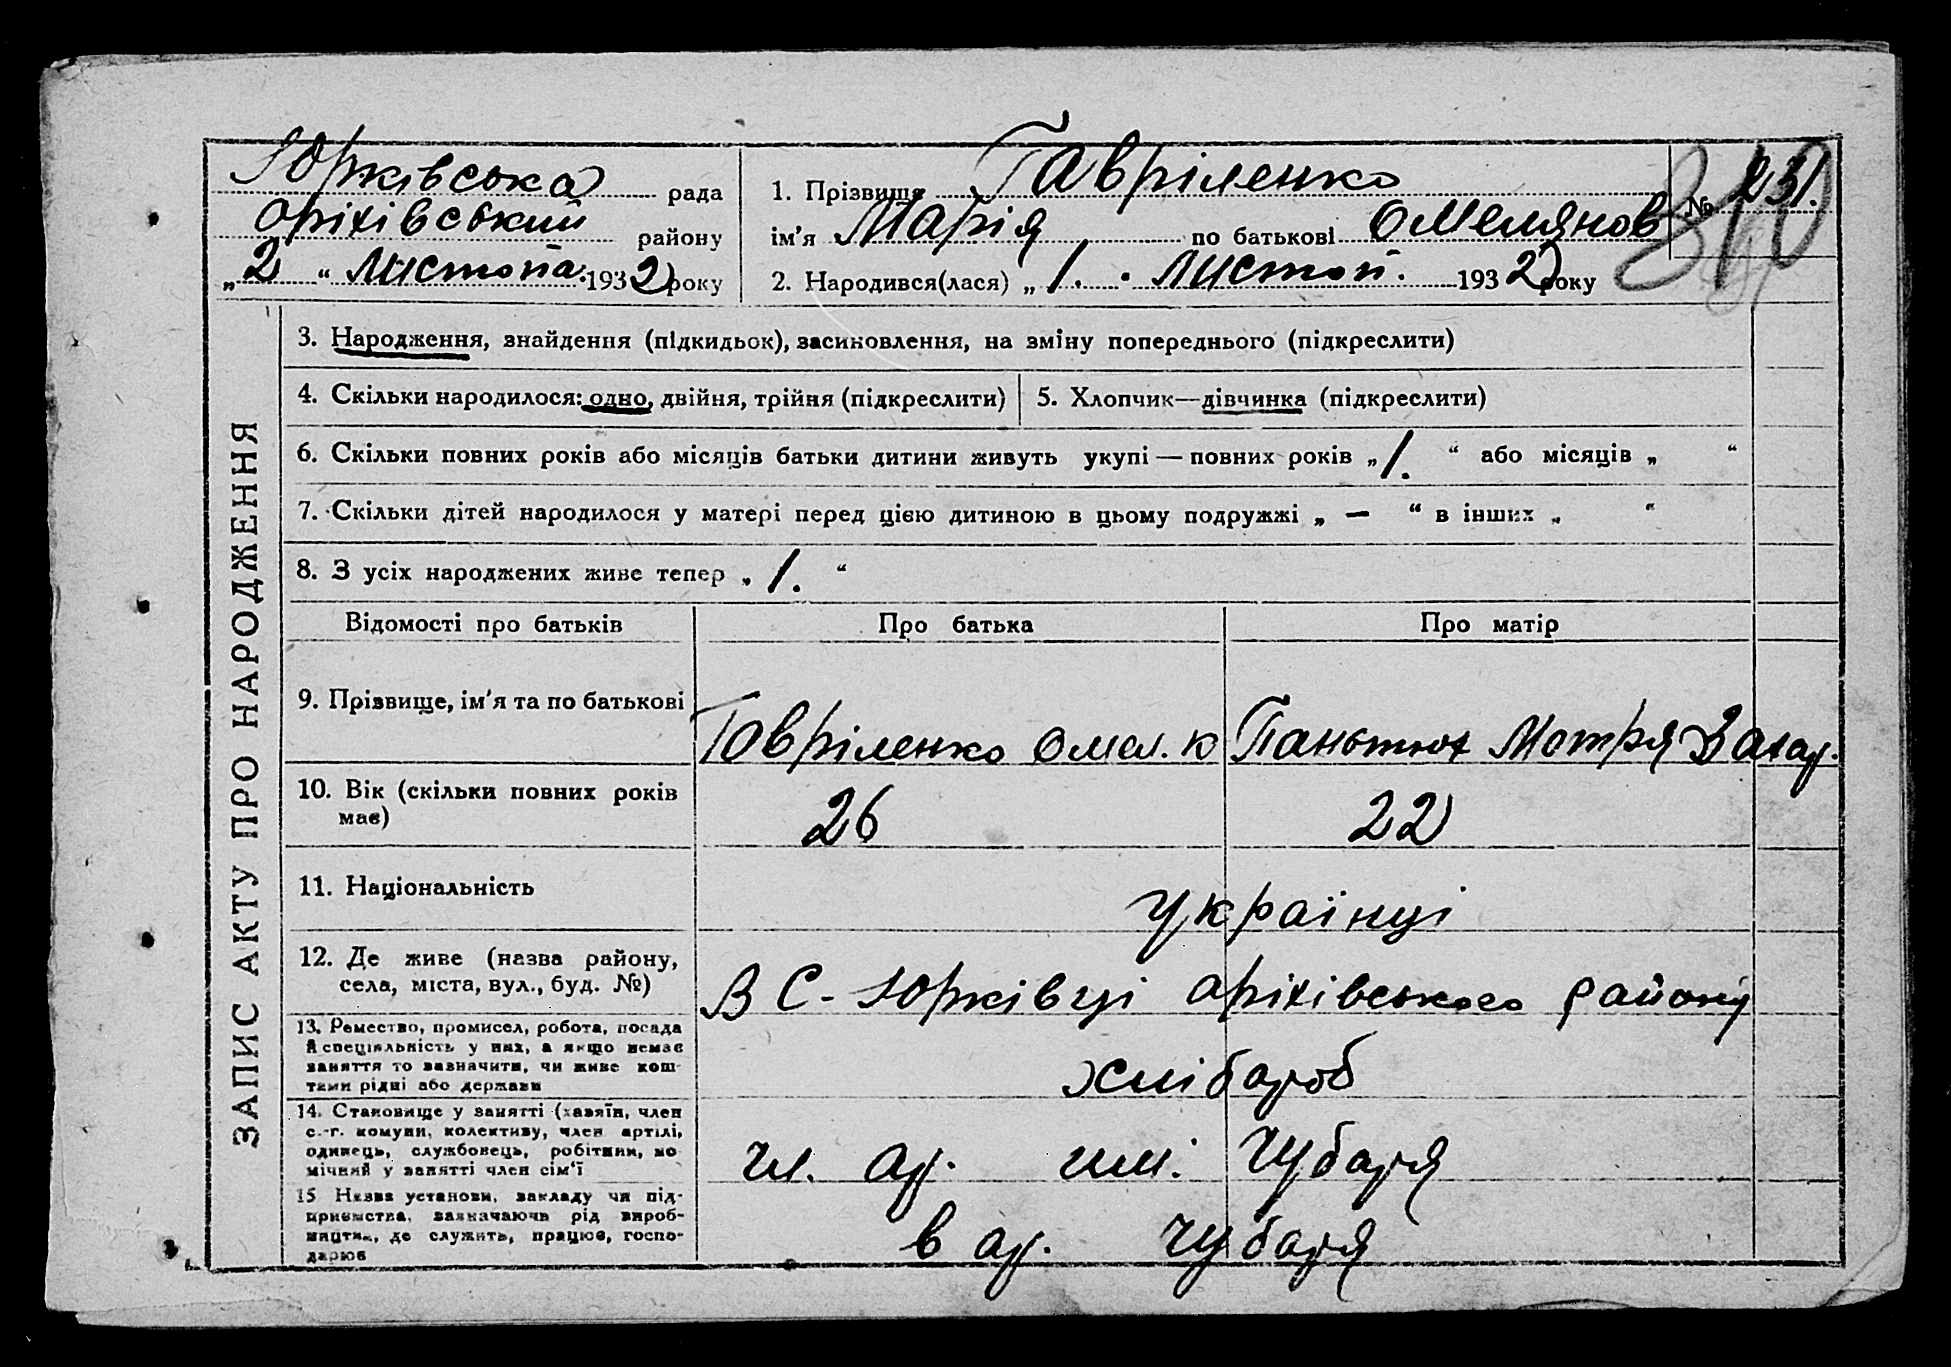 Юрківська рада
оріхівський району
„2“ Листопа. 1932 року
1. Прізвище Гавріленко
ім’я Марія по батькові Омелянов
2. Народився(лася) „1.“ Листоп. 1932 року
№ 231.
ЗАПИС АКТУ ПРО НАРОДЖЕННЯ
3. Народження, знайдення (підкидьок), засиновлення, на зміну попереднього (підкреслити)
4. Скільки народилося: одно, двійня, трійня (підкреслити)
5. Хлопчик—дівчинка (підкреслити)
6. Скільки повних років або місяців батьки дитини живуть укупі — повних років „1.“ або місяців „ “
7. Скільки дітей народилося у матері перед цією дитиною в цьому подружжі „ — “ в інших „ “
8. З усіх народжених живе тепер „1.“
Відомості про батьків Про батька Про матір
9. Прізвище, ім’я та по батькові
Гавріленко Омел. К Паньтюх Мотря Захар.
10. Вік (скільки повних років
має)
26 22
11. Національність
Українці
12. Де живе (назва району,
села, міста, вул., буд. №)
В С. Юрківці оріхівського району
13. Ремество, промисел, робота, посада
й спеціяльність у них, а якщо немає
заняття то зазначити, чи живе кош-
тами рідні або держави
хлібароб
14. Становище у занятті (хазяїн, член
с.-г. комуни, колективу, член артілі,
одинець, службовець, робітник, по
мічний у занятті член сім’ї
чл. ар. им. Чубаря
15 Назва установи, закладу чи під-
приємства, зазначаючи рід вироб-
ництва, де служить, працює, госпо-
дарює
в ар. Чубаря